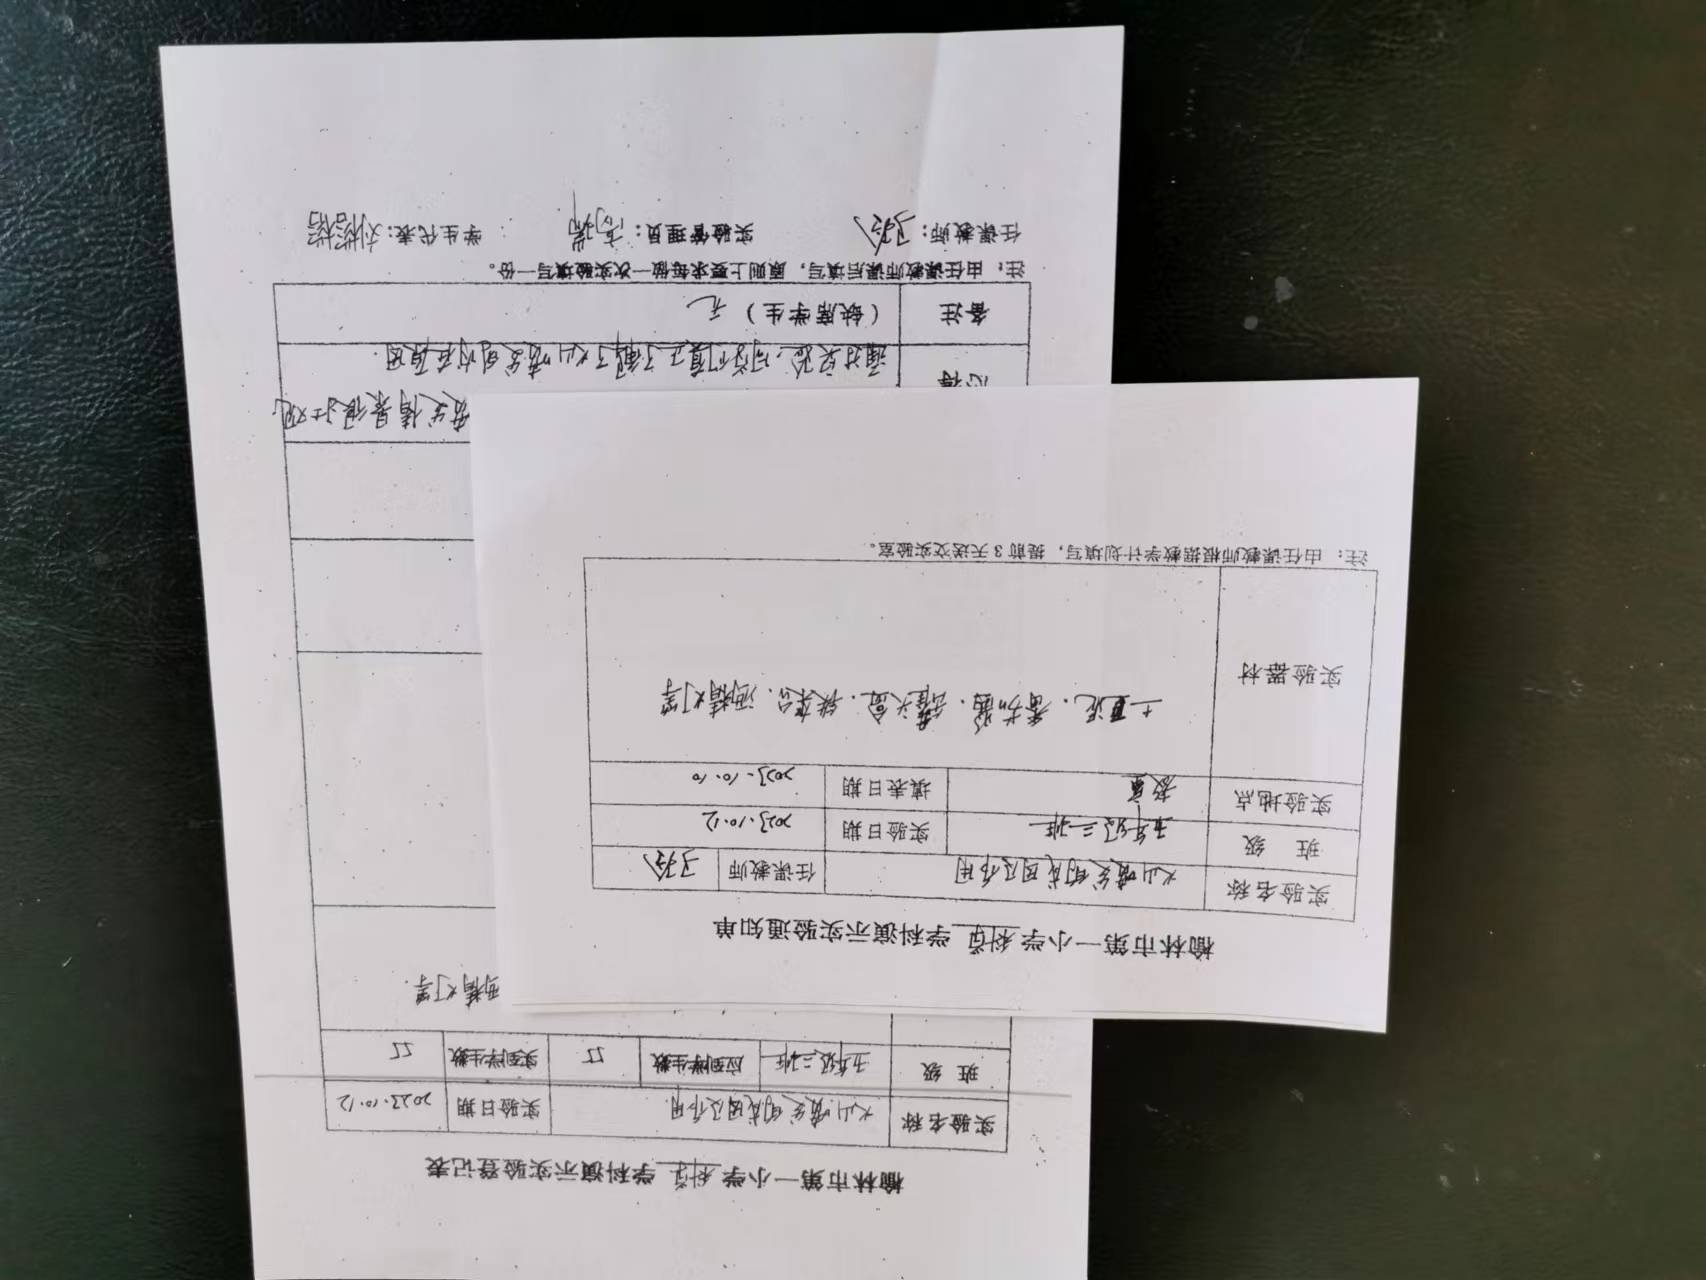 榆林市第一小学 科学 学科演示实验通知单
实验名称 火山喷发的成因及作用 任课教师
班 级 五年级三班 实验日期 2023.10.12
实验地点 教室 填表日期 2023.10.10
实验器材 土豆泥、番茄酱、罐头盒、铁架台、酒精灯等
注：由任课教师根据教学计划填写，提前 3 天送交实验室。
榆林市第一小学 科学 学科演示实验登记表
实验名称 火山喷发的成因及作用 实验日期 2023.10.12
班 级 五年级三班 应到学生数 55 实到学生数 55
酒精灯等.
发生情景很壮观
心得 通过实验，同学们真正了解了火山喷发的内在原因.
备注 （缺席学生） 无
注：由任课教师课后填写，原则上要求每做一次实验填写一份。
任课教师： 实验管理员：高瑞 学生代表：刘